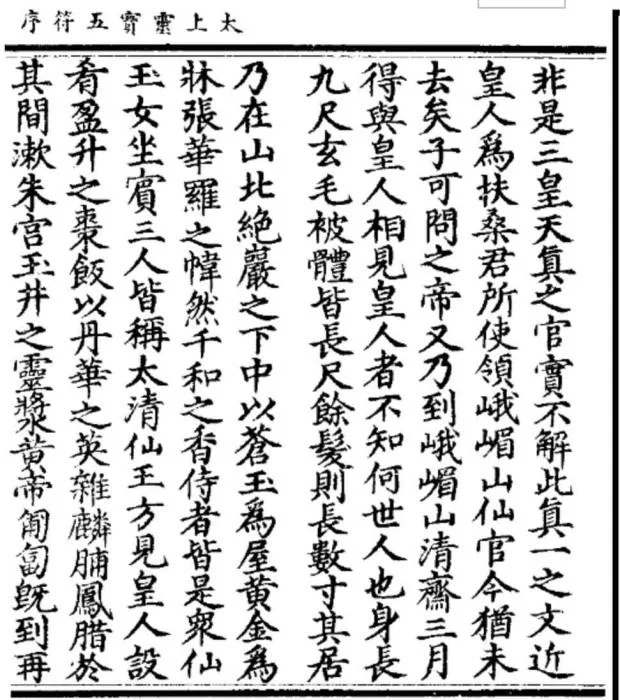 太上靈寶五符序
非是三皇天眞之官實不解此眞一之文近
皇人爲扶桑君所使領峨嵋山仙官今猶未
去矣子可問之帝又乃到峨嵋山清齋三月
得與皇人相見皇人者不知何世人也身長
九尺玄毛被體皆長尺餘髮則長數寸其居
乃在山北絕巖之下中以蒼玉爲屋黃金爲
牀張華羅之幃然千和之香侍者皆是衆仙
玉女坐賓三人皆稱太清仙王方見皇人設
肴盈升之棗飯以丹華之英雜麟脯鳳腊於
其間漱朱宮玉井之靈漿黃帝匍匐旣到再